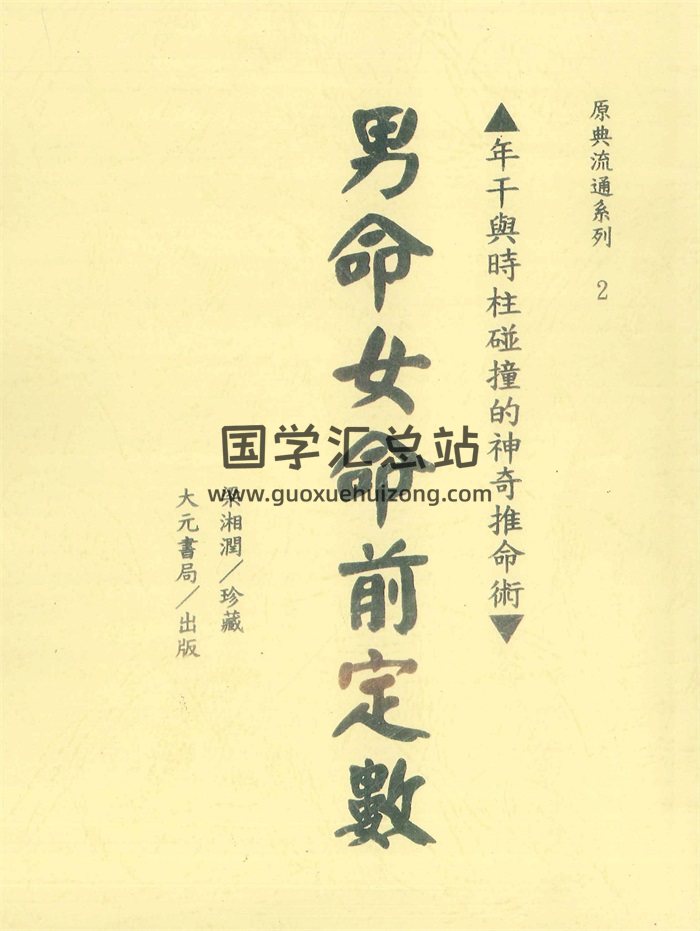 原典流通系列 2
▲年干與時柱碰撞的神奇推命術▼
男命女命前定數
梁湘潤／珍藏
大元書局／出版
国学汇总站
www.guoxuehuizong.com